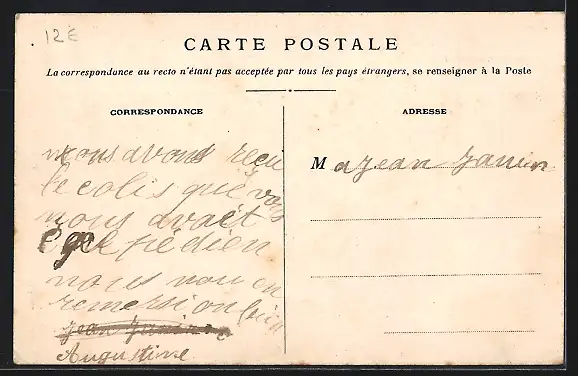 12E
CARTE POSTALE
La correspondance au recto n'étant pas acceptée par tous les pays étrangers, se renseigner à la Poste
CORRESPONDANCE
ADRESSE
nous avons reçu
le colis que vous
nous avait
nous vous en
remersion bien
Jean
Augustine
M a Jean Janin